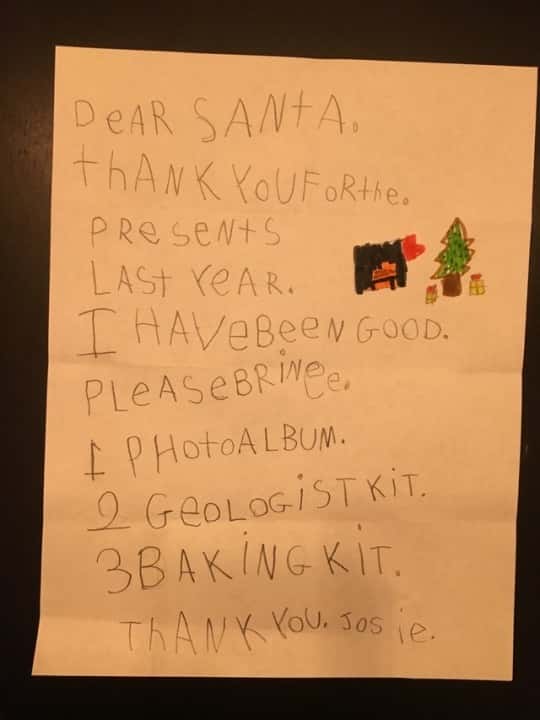 DeAR SANtA.
thANK YOUFORthe.
PResents
LASt YeAR.
I HAVeBeeN GOOD.
PLeASeBRiNGe.
1 PHOtOALBUM.
2 GeOLOGiST KiT.
3BAKiNG KiT.
ThANK YOU. Josie.